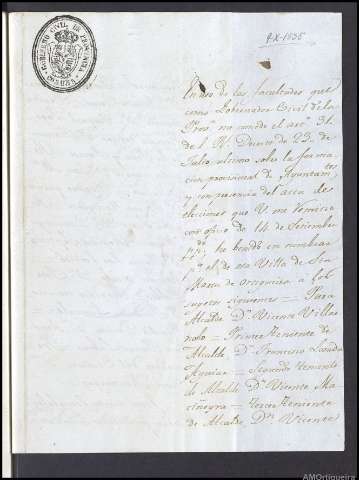 GOBIERNO CIVIL DE PROVINCIA
CORUÑA
9-X-1835
En uso de las facultades que
como Gobernador Civil de la
Prova me concede el arto 31.
del Rl Decreto de 23 de
Julio ultimo sobre la forma
cion provisional de Ayuntamtos
y con presencia del acta de
elecciones que V. me remitio
con oficio de 14 de Setiembre
ppdo he tenido en nombrar
pa el de esa Villa de Sta
Marta de Ortigueira a los
sugetos siguientes = Para
Alcalde Dn Vicente Villar
nobo = Primer Teniente de
Alcalde Dn Francisco
Aguiar = Segundo Teniente
de Alcalde Dn Vicente Ma
ciñeyra = Tercer Teniente
de Alcalde, Dn Vicente
AMOrtigueira